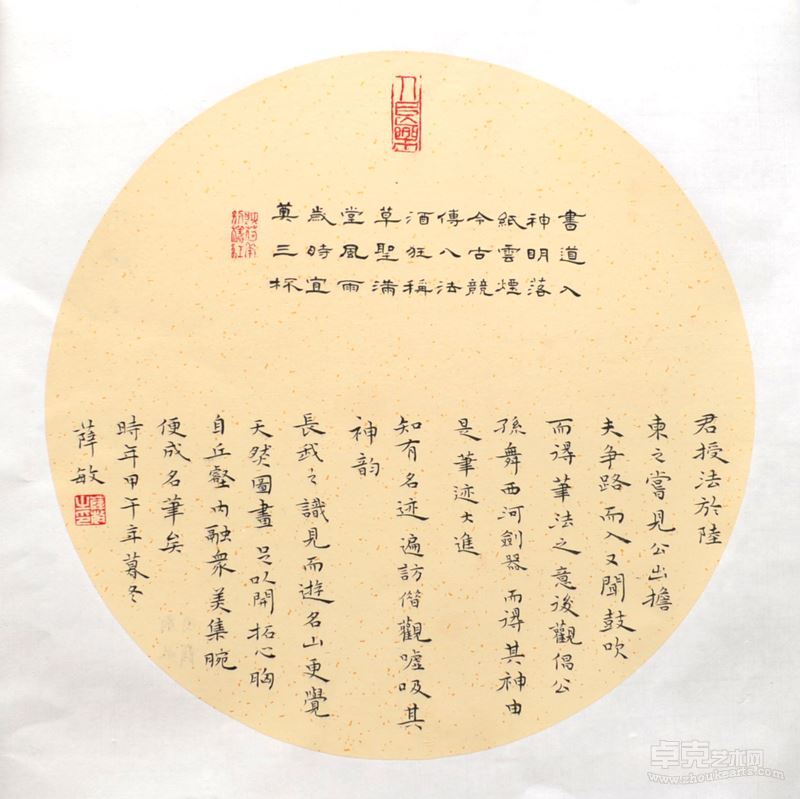 人長樂
書道入
神明落
紙雲煙
今古競
傳八法
酒狂稱
草聖滿
堂風雨
歲時宜
奠三杯
君授法於陸
東之嘗見公出擔
夫爭路而入又聞鼓吹
而得筆法之意後觀倡公
孫舞西河劍器而得其神由
是筆迹大進
知有名迹遍訪借觀噓吸其
神韵
長我之識見而遊名山更覺
天然圖畫足以開拓心胸
自丘壑内融衆美集腕
便成名筆矣
時年甲午年暮冬
薛敏
卓克艺术网
www.zhoukearts.com